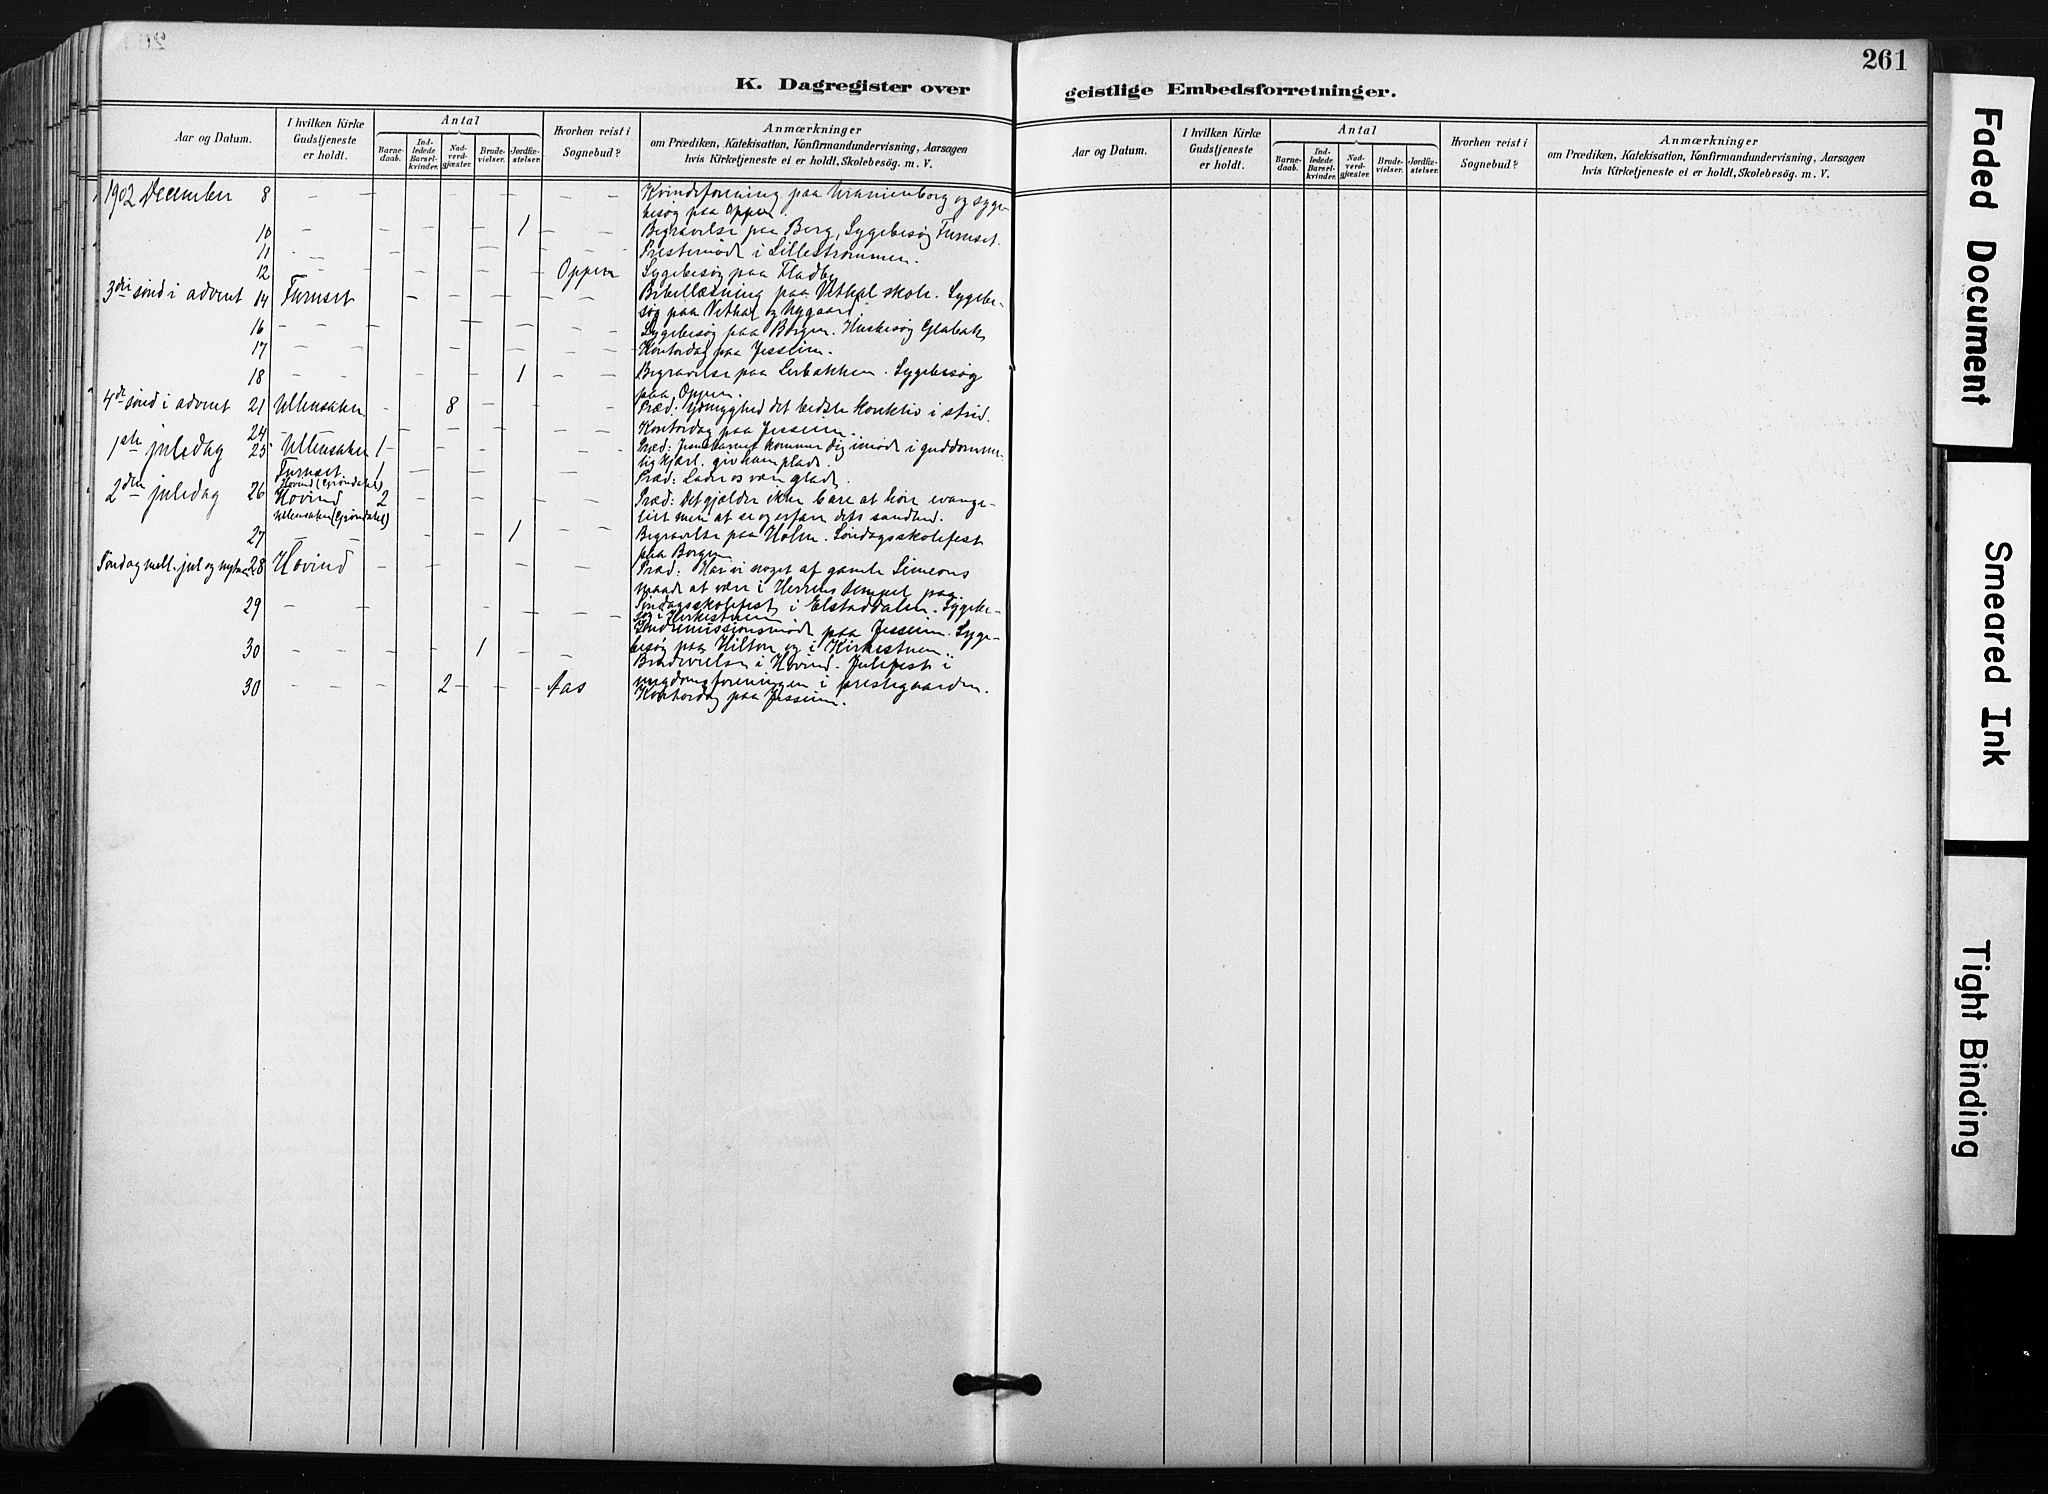 261
K. Dagregister over
geistlige Embedsforretninger.
Aar og Datum.
I hvilken Kirke
Gudstjeneste
er holdt.
Antal
Barne-
daab.
Ind-
ledede
Barsel-
kvinder.
Nad-
verd-
gjæster.
Brude-
vielser.
Jordfæ-
stelser.
Hvorhen reist i
Sognebud?
Anmærkninger
om Prædiken, Katekisation, Konfirmandundervisning, Aarsagen
hvis Kirketjeneste ei er holdt, Skolebesög. m. V.
1902 December 8 – – – – – – – – Kvindeforening paa Uranienborg og syge-
besøg paa Oppen.
10 – – – – – – 1 – – Begravelse paa Berg, Sygebesøg Furuset.
11 – – – – – – – – – Prestemøde i Lillestrømmen.
12 – – – – – Oppen Sygebesøg paa Fladby
3die sønd i advent 14 Furuset – – – – – – – Bibellæsning paa Vethal skole. Sygebe-
søg paa Vethal og Nygaard
16 – – – – – – – – Sygebesøg paa Borgen. Husbesøg
17 – – – – – – – – Kontordag paa Jessum.
18 – – – – – – 1 – – Begravelse paa Lerbakken. Sygebesøg
paa Oppen.
4de sønd i advent 21 Ullensaker – – 8 – – – – Præd. Ydmyghed det bedste i strid.
24 – – – – – – – – Kontordag paa Jessum.
1ste juledag 25 Ullensaker 1 – – – – – – Præd: Jesusbarnet kommer dig imøde i guddomme-
lig kjærl. giv ham plads.
Furuset. 1 – – – – – – Præd: Lader os være glade.
Hovind (Grøndahl)
2den juledag 26 Hovind 2 – – – – – – Præd: Det gjælder ikke bare at høre evange-
liet men at se og erfare dets sandhed.
Ullensaker (Grøndahl)
27 – – – – – – 1 – – Begravelse paa Holm. Søndagsskolefest
paa Borgen
Søndag mell. jul og nytaar 28 Hovind – – – – – – – Præd: Har vi noget af gamle Simeons
maade at være i Herrens tempel paa.
29 – – – – – – – – Søndagsskolefest i Elstaddalen. Sygebe-
søg i Kirkestuen
Indremissionsmøde paa Jessum. Syge-
30 – – – – – 1 – – besøg paa Hilton og i Kirkestuen.
Brudevielse i Hovind. Julefest i
ungdomsforeningen i prestegaarden.
30 – – – 2 – – Aas Kontordag paa Jessum.
Aar og Datum.
I hvilken Kirke
Gudstjeneste
er holdt.
Antal
Barne-
daab.
Ind-
ledede
Barsel-
kvinder.
Nad-
verd-
gjæster.
Brude-
vielser.
Jordfæ-
stelser.
Hvorhen reist i
Sognebud?
Anmærkninger
om Prædiken, Katekisation, Konfirmandundervisning, Aarsagen
hvis Kirketjeneste ei er holdt, Skolebesög. m. V.
Faded Document
Smeared Ink
Tight Binding